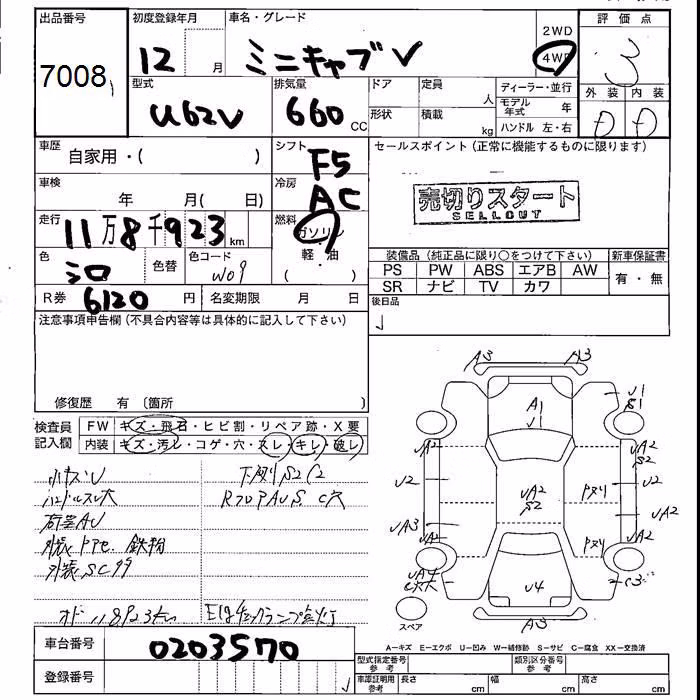 出品番号
7008
初度登録年月
12 月
車名・グレード
ミニキャブ V
2WD
4WD
評価点
3
外装 内装
D D
型式
U62V
排気量
660 cc
ドア
定員
人
形状
積載
kg
ディーラー・並行
モデル年式 年
ハンドル 左・右
車歴
自家用・( )
シフト
F5
セールスポイント (正常に機能するものに限ります)
売切りスタート
SELLOUT
車検
年 月( 日)
冷房
AC
走行
11万8千923 km
燃料
ガソリン
(軽・油)
色
シロ
色替
色コード
W09
装備品 (純正品に限り○をつけて下さい)
PS PW ABS エアB AW
SR ナビ TV カワ
新車保証書
有・無
R券
6120 円
名変期限 月 日
後日品
注意事項申告欄 (不具合内容等は具体的に記入して下さい)
修復歴 有 (箇所 )
検査員記入欄
FW キズ・飛石・ヒビ割・リペア跡・X要
内装 キズ・汚レ・コゲ・穴・スレ・キレ・破レ
小キズU
下廻りS2C2
ハンドルスレ大
RフロアAUS C穴
荷室AU
外装PPC. 鉄粉
外装SC有
A3 A3
A1
U1
U1
S1
UA2 UA2
S2
U2 U2
UA2
S2
Pヌリ
UA3 UA2
UA2 UA2
Pヌリ
UA4
C3
U4
A3
スペア
Eg チェックランプ点灯
車台番号
0203570
登録番号
A─キズ E─エクボ U─凹み W─補修跡 S─サビ C─腐食 XX─交換済
型式指定番号
参考
類別区分番号
参考
車庫証明用
参考
長さ cm 幅 cm 高さ cm